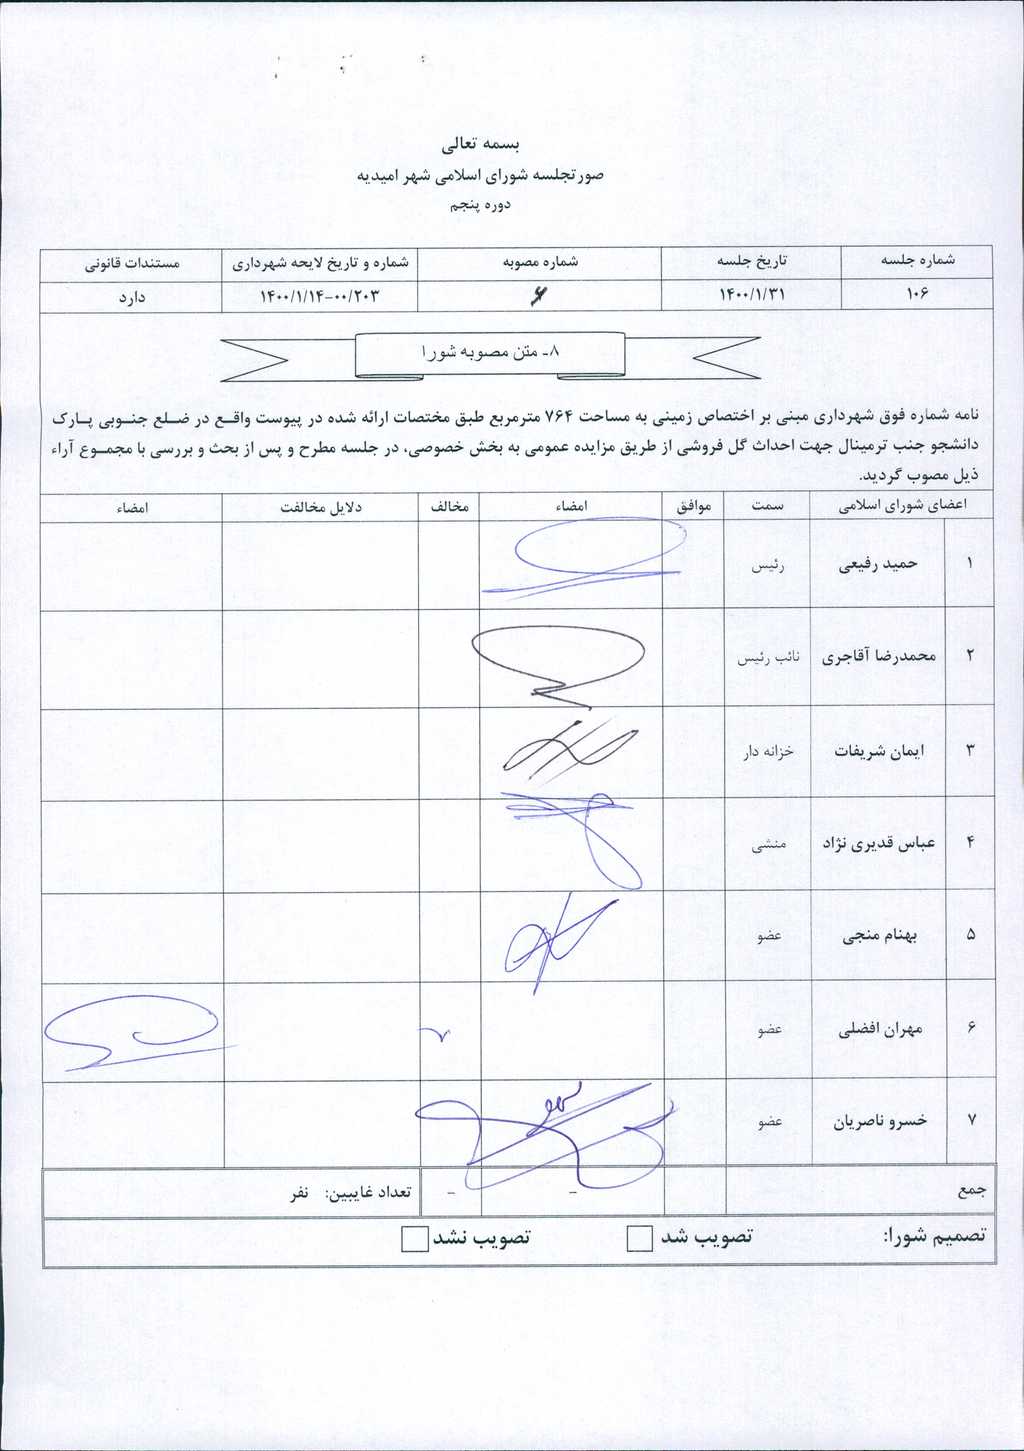 بسمه تعالی
صورتجلسه شورای اسلامی شهر امیدیه
دوره پنجم
شماره جلسه تاریخ جلسه شماره مصوبه شماره و تاریخ لایحه شهرداری مستندات قانونی
۱۰۶ ۱۴۰۰/۱/۳۱ ۱۴۰۰/۱/۱۴-۰۰/۲۰۳ دارد
۸- متن مصوبه شورا
نامه شماره فوق شهرداری مبنی بر اختصاص زمینی به مساحت ۷۶۴ مترمربع طبق مختصات ارائه شده در پیوست واقع در ضلع جنوبی پارک
دانشجو جنب ترمینال جهت احداث گل فروشی از طریق مزایده عمومی به بخش خصوصی، در جلسه مطرح و پس از بحث و بررسی با مجموع آراء
ذیل مصوب گردید.
اعضای شورای اسلامی سمت موافق امضاء مخالف دلایل مخالفت امضاء
۱ حمید رفیعی رئیس
۲ محمدرضا آقاجری نائب رئیس
۳ ایمان شریفات خزانه دار
۴ عباس قدیری نژاد منشی
۵ بهنام منجی عضو
۶ مهران افضلی عضو
۷ خسرو ناصریان عضو
جمع - - تعداد غایبین: نفر
تصمیم شورا: تصویب شد تصویب نشد